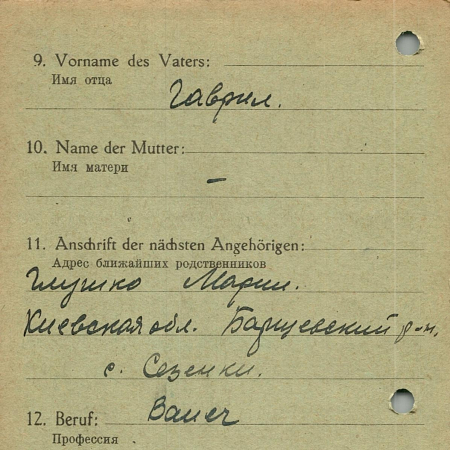 9. Vorname des Vaters:
Имя отца
Гаврил.
10. Name der Mutter:
Имя матери
–
11. Anschrift der nächsten Angehörigen:
Адрес ближайших родственников
Глушко Марии.
Киевская обл. Барщевский р-н,
с. Сезенки.
12. Beruf: Bauer
Профессия